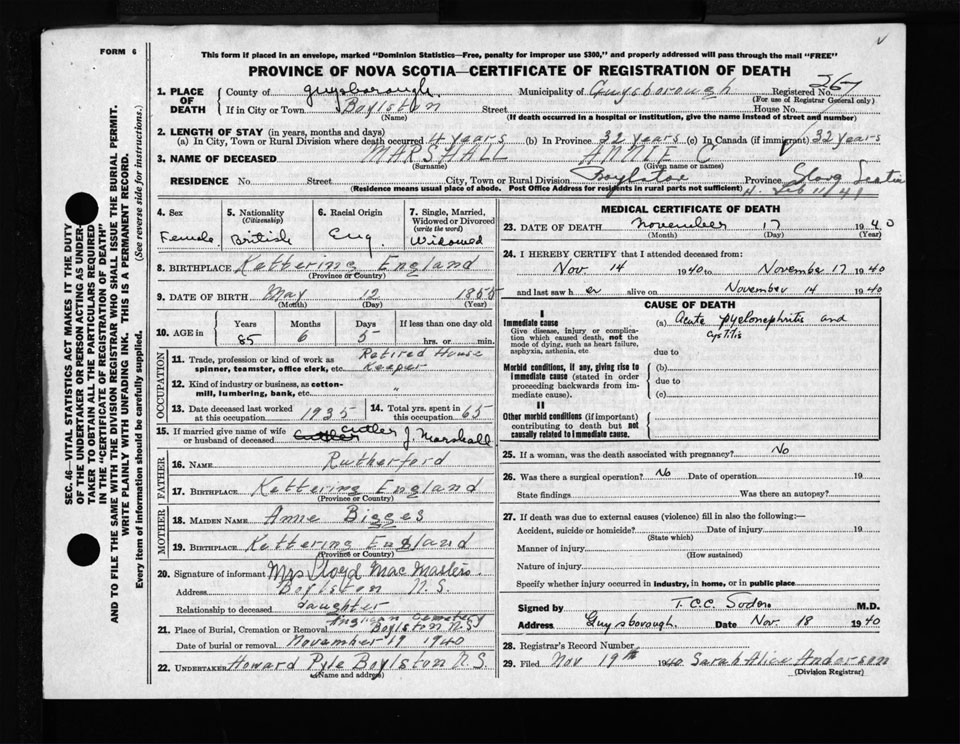 FORM 6
This form if placed in an envelope, marked "Dominion Statistics—Free, penalty for improper use $300," and properly addressed will pass through the mail "FREE"
PROVINCE OF NOVA SCOTIA—CERTIFICATE OF REGISTRATION OF DEATH
SEC. 46—VITAL STATISTICS ACT MAKES IT THE DUTY
OF THE UNDERTAKER OR PERSON ACTING AS UNDER-
TAKER TO OBTAIN ALL THE PARTICULARS REQUIRED
IN THE "CERTIFICATE OF REGISTRATION OF DEATH"
AND TO FILE THE SAME WITH THE DIVISION REGISTRAR WHO SHALL ISSUE THE BURIAL PERMIT.
WRITE PLAINLY WITH UNFADING INK. THIS IS A PERMANENT RECORD.
Every item of information should be carefully supplied. (See reverse side for instructions.)
1. PLACE OF DEATH County of Guysborough Municipality of Guysborough Registered No. 267
(For use of Registrar General only)
If in City or Town Boylston Street House No.
(Name) (If death occurred in a hospital or institution, give the name instead of street and number)
2. LENGTH OF STAY (in years, months and days)
(a) In City, Town or Rural Division where death occurred 4 years (b) In Province 32 years (c) In Canada (if immigrant) 32 years
3. NAME OF DECEASED MARSHALL ANNIE C
(Surname) (Given name or names)
RESIDENCE No. Street City, Town or Rural Division Boylston Province Nova Scotia
(Residence means usual place of abode. Post Office Address for residents in rural parts not sufficient)
4. Sex Female
5. Nationality (Citizenship) British
6. Racial Origin Eng
7. Single, Married, Widowed or Divorced (write the word) Widowed
8. BIRTHPLACE Kettering England
(Province or Country)
9. DATE OF BIRTH May 12 1855
(Month) (Day) (Year)
10. AGE in Years 85 Months 6 Days 5 If less than one day old hrs. or min.
OCCUPATION
11. Trade, profession or kind of work as spinner, teamster, office clerk, etc. Retired House Keeper
12. Kind of industry or business, as cotton-mill, lumbering, bank, etc. "
13. Date deceased last worked at this occupation 1935
14. Total yrs. spent in this occupation 65
15. If married give name of wife or husband of deceased Cutler Cutler J. Marshall
FATHER
16. NAME Rutherford
17. BIRTHPLACE Kettering England
(Province or Country)
MOTHER
18. MAIDEN NAME Anne Bigges
19. BIRTHPLACE Kettering England
(Province or Country)
20. Signature of informant Mrs Lloyd MacMasters
Address Boylston N.S.
Relationship to deceased daughter
21. Place of Burial, Cremation or Removal Anglican Cemetery Boylston N.S
Date of burial or removal November 19 1940
22. UNDERTAKER Howard Pyle Boylston N.S.
(Name and address)
MEDICAL CERTIFICATE OF DEATH
23. DATE OF DEATH November 17 1940
(Month) (Day) (Year)
24. I HEREBY CERTIFY that I attended deceased from:
Nov 14 1940 to November 17 1940
and last saw her alive on November 14 1940
CAUSE OF DEATH
I
Immediate cause
Give disease, injury or complication which caused death, not the mode of dying, such as heart failure, asphyxia, asthenia, etc
(a) Acute pyelonephritis and cystitis
due to
Morbid conditions, if any, giving rise to immediate cause (stated in order proceeding backwards from immediate cause).
(b)
due to
(c)
II
Other morbid conditions (if important) contributing to death but not causally related to immediate cause.
25. If a woman, was the death associated with pregnancy? No
26. Was there a surgical operation? No Date of operation 19
State findings Was there an autopsy?
27. If death was due to external causes (violence) fill in also the following:—
Accident, suicide or homicide? Date of injury 19
(State which)
Manner of injury
(How sustained)
Nature of injury
Specify whether injury occurred in industry, in home, or in public place
Signed by T.C.C. Sodero M.D.
Address Guysborough. Date Nov. 18 1940
28. Registrar's Record Number
29. Filed Nov 19th 1940 Sarah Alice Anderson
(Division Registrar)